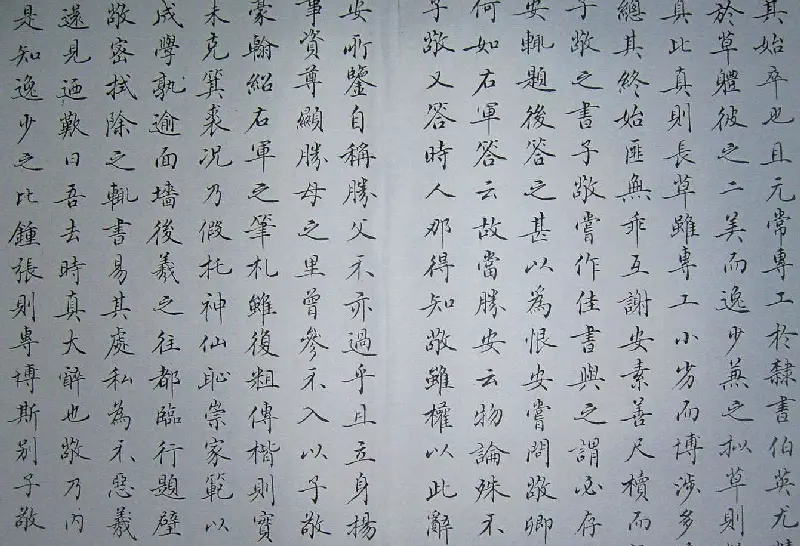 其始卒也且元常專工於隸書伯英尤精
於草體彼之二美而逸少兼之拟草則
真比真則長草雖專工小劣而博涉多
總其終始匪無乖互謝安素善尺牘而
子敬之書子敬嘗作佳書與之謂必存
安輒題後答之甚以為恨安嘗問敬卿
何如右軍答云故當勝安云物論殊不
子敬又答時人那得知敬雖權以此辭
安所鑒自稱勝父不亦過乎且立身揚
事資尊顯勝母之里曾參不入以子敬
豪翰紹右軍之筆札雖復粗傳楷則實
未克箕裘況乃假托神仙恥崇家範以
成學孰逾面墻後羲之往都臨行題壁
敬密拭除之輒書易其處私為不惡羲
還見迺歎曰吾去時真大醉也敬乃內
是知逸少之比鍾張則專博斯別子敬